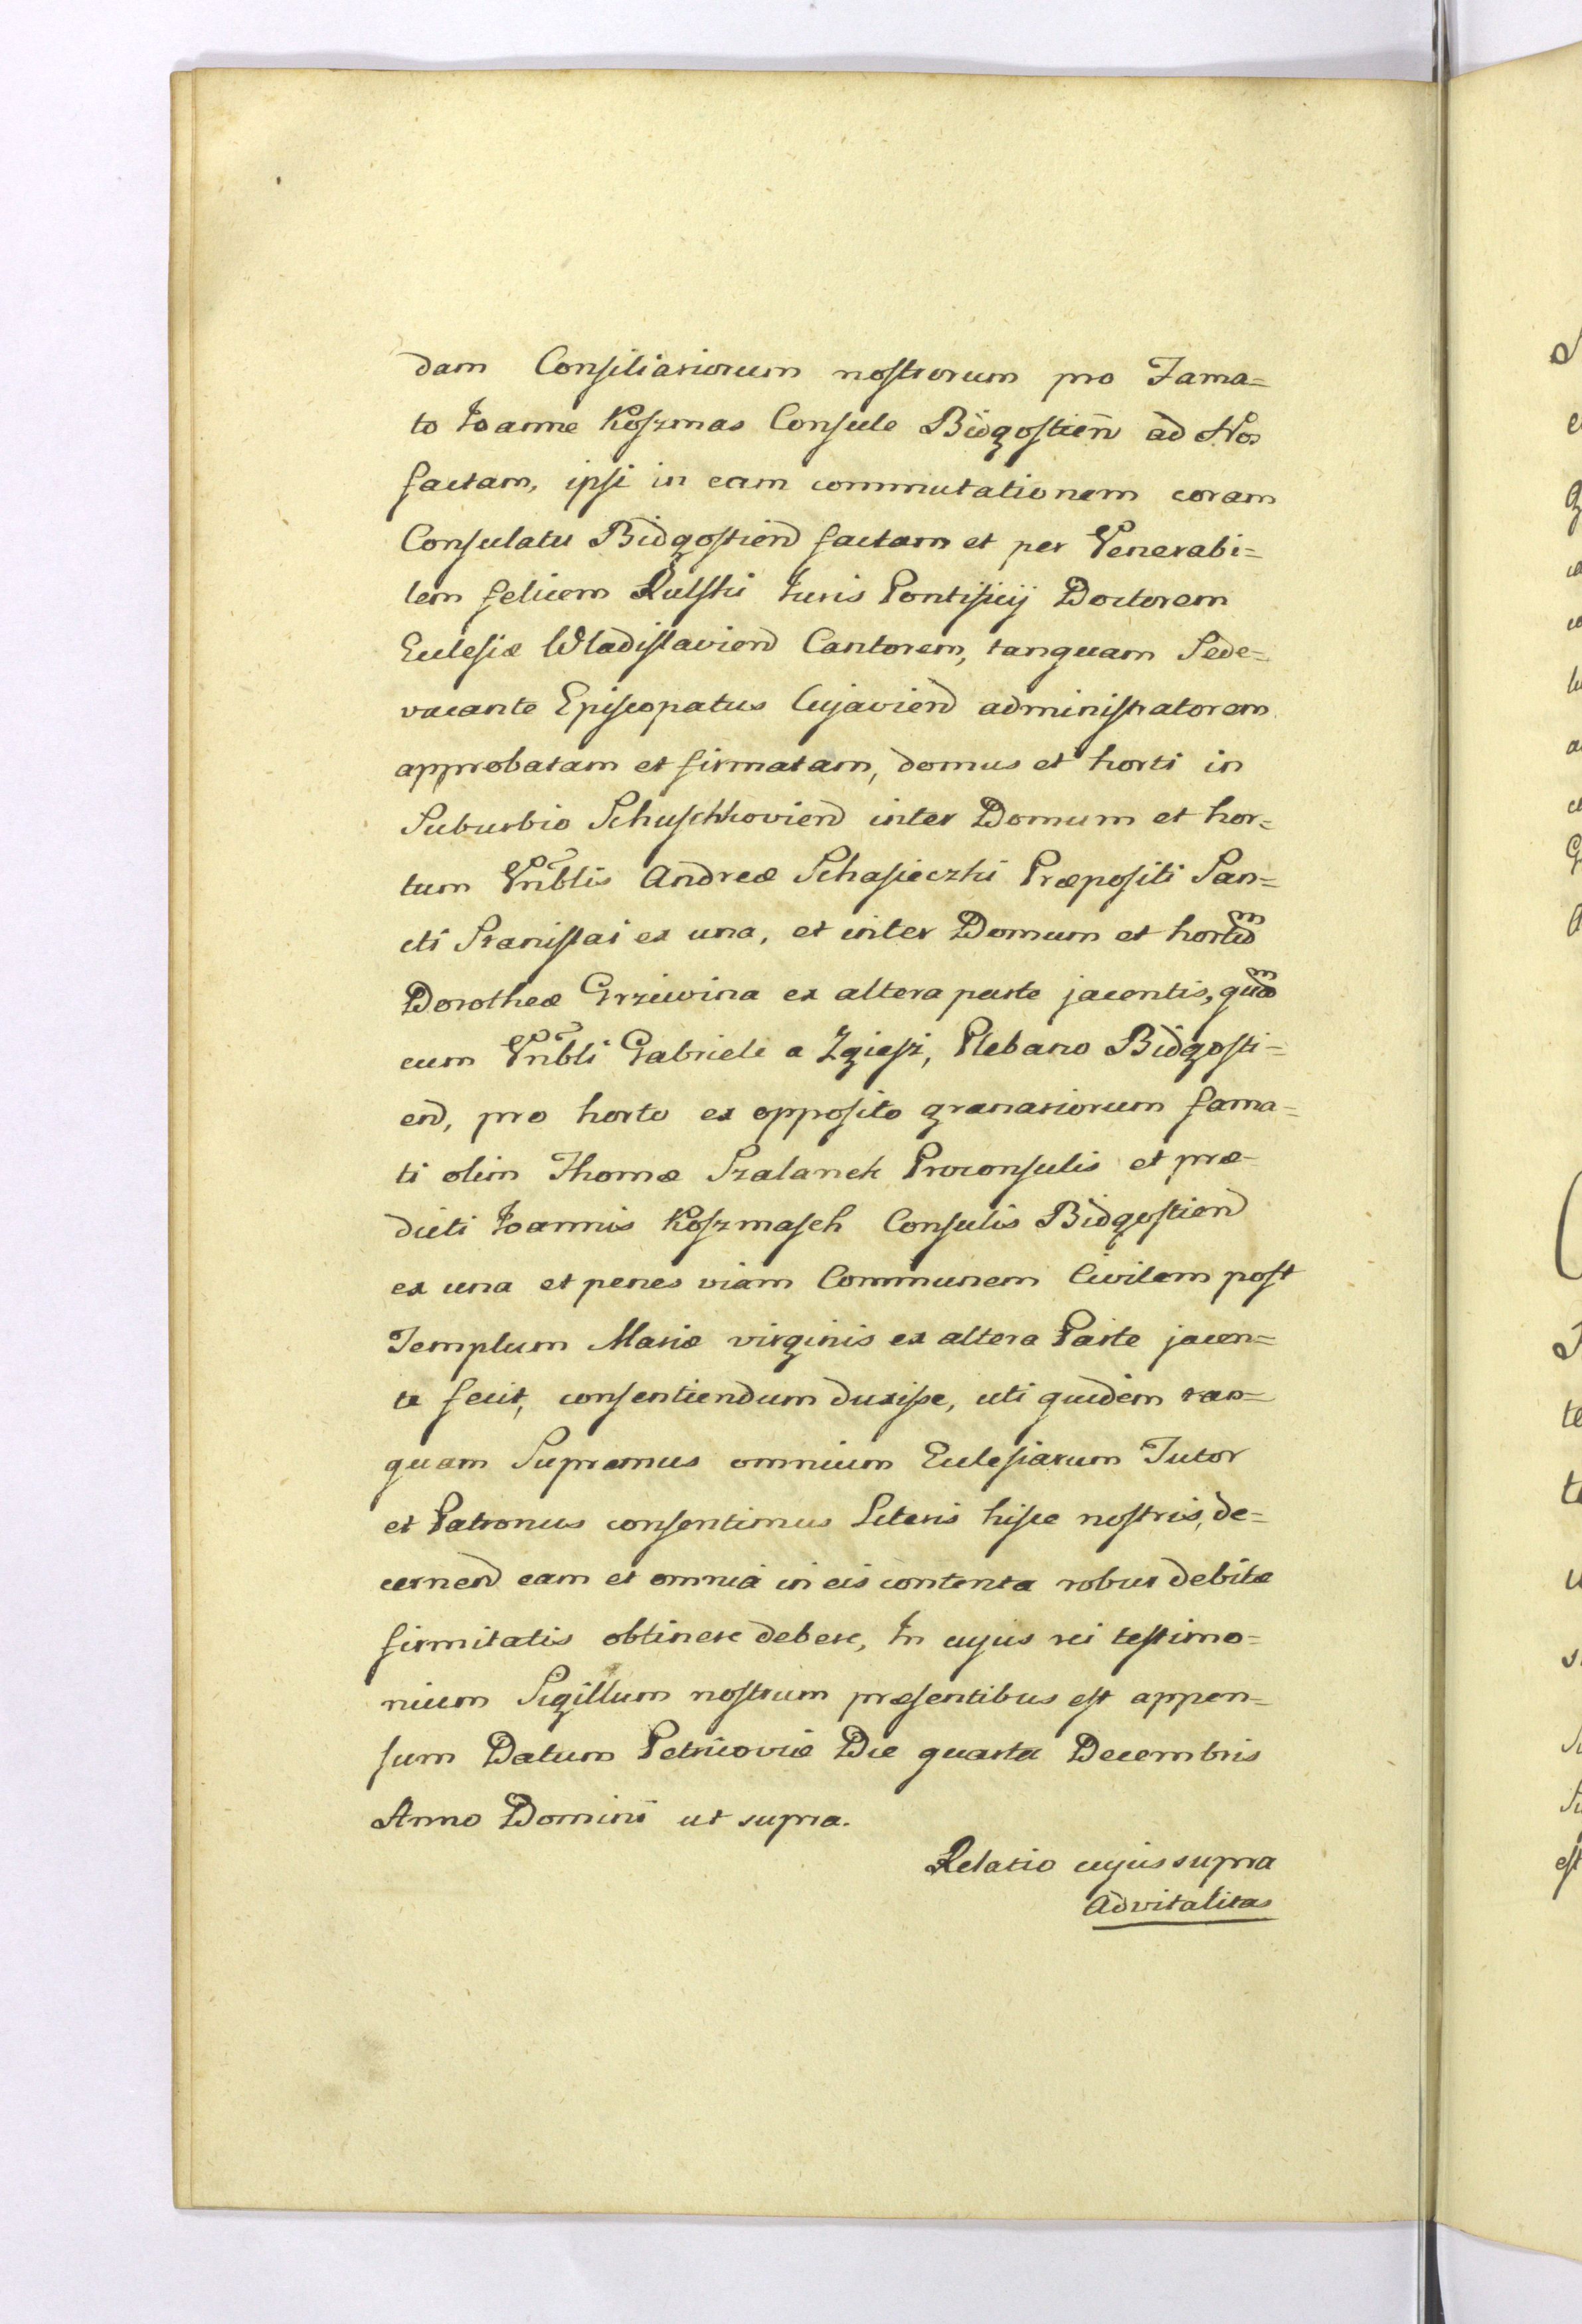 dam Consiliariorum nostrorum pro Fama=
to Ioanne Koszmas Consule Bidgostien ad Nos
factam, ipsi in eam commutationem coram
Consulatu Bidgostien factam et per Venerabi=
lem felicem Rulski Iuris Pontificij Doctorem
Eclesiæ Wladislavien Cantorem, tanquam Sede=
vacante Episcopatus Cujavien administratorem
approbatam et firmatam, domus et horti in
Suburbio Schuschkovien inter Domum et hor=
tum Vnblis Andreæ Schasieczki Præpositi San=
cti Stanislai ex una, et inter Domum et hortum
Dorotheæ Grziwina ex altera parte jacentis, quam
cum Vnbli Gabriele a Zgiesz, Plebano Bidgosti=
en, pro horto ex opposito granariorum fama=
ti olim Thomæ Szalanek Proconsulis et præ-
dicti Ioannis Koszmasch Consulis Bidgostien
ex una et penes viam Communem Civilem post
Templum Mariæ virginis ex altera Parte jacen=
te fecit, consentiendum duxisse, uti quidem tan=
quam Supremus omnium Eclesiarum Tutor
et Patronus consentimus Literis hisce nostris, de=
cernen eam et omnia in eis contenta robur debitæ
firmitatis obtinere debere, In cujus rei testimo=
nium Sigillum nostrum præsentibus est appen=
sum Datum Petricoviæ Die quarta Decembris
Anno Domini ut supra.
Relatio cujus supra
Advitalitas